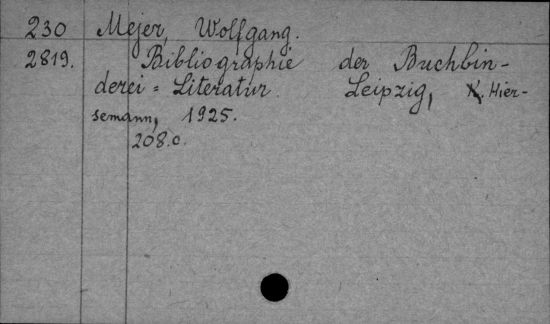 230 Mejer, Wolfgang.
2819. Bibliographie der Buchbin-
derei = Literatur. Leipzig, K. Hier-
semann, 1925.
208.c.